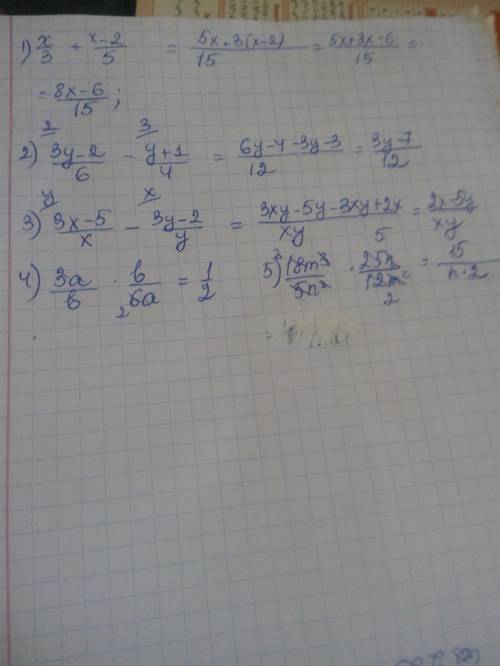 1) x/3 + x-2/5 = 5x+3(x-2)/15 = 5x+3x-6/15 =
= 8x-6/15 ;
2 3
2) 3y-2/6 - y+1/4 = 6y-4-3y-3/12 = 3y-7/12
y x
3) 3x-5/x - 3y-2/y = 3xy-5y-3xy+2x/xy = 2x-5y/xy
4) 3a/b · b/6a 2 = 1/2 5) 3 18m³/5n² · 25n/12m² 5 2 = 15/n·2